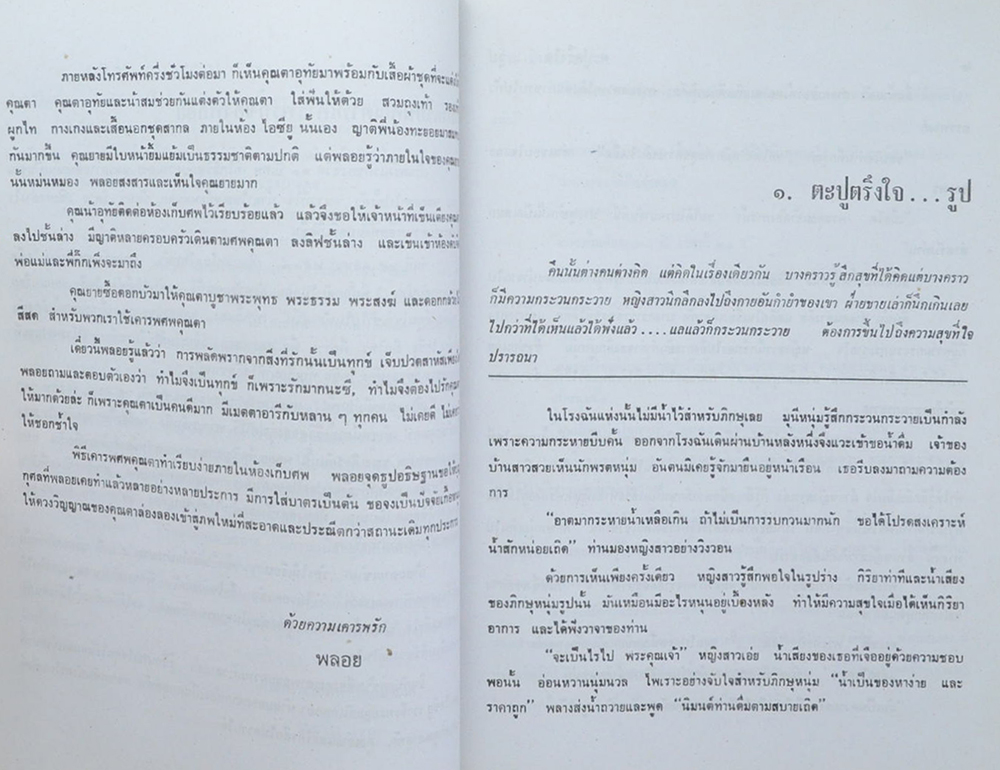 ภายหลังโทรศัพท์ครึ่งชั่วโมงต่อมา ก็เห็นคุณตาอุทัยมาพร้อมกับเสื้อผ้าชุดที่จะแต่ง
คุณตา คุณตาอุทัยและน้าสมช่วยกันแต่งตัวให้คุณตา ใส่ฟันให้ด้วย สวมถุงเท้า รองเท้า
ผูกไท กางเกงและเสื้อนอกชุดสากล ภายในห้อง ไอซียู นั้นเอง ญาติพี่น้องทะยอยมา
กันมากขึ้น คุณยายมีใบหน้ายิ้มแย้มเป็นธรรมชาติตามปกติ แต่พลอยรู้ว่าภายในใจของคุณ
นั้นหม่นหมอง พลอยสงสารและเห็นใจคุณยายมาก
คุณน้าอุทัยติดต่อห้องเก็บศพไว้เรียบร้อยแล้ว แล้วจึงขอให้เจ้าหน้าที่เข็นเตียง
ลงไปชั้นล่าง มีญาติหลายครอบครัวเดินตามศพคุณตา ลงลิฟชั้นล่าง และเข็นเข้าห้อง
พ่อแม่และพี่กิ๊กเพิ่งจะมาถึง
คุณยายซื้อดอกบัวมาให้คุณตาบูชาพระพุทธ พระธรรม พระสงฆ์ และดอก
สีสด สำหรับพวกเราใช้เคารพศพคุณตา
เดี๋ยวนี้พลอยรู้แล้วว่า การพลัดพรากจากสิ่งที่รักนั้นเป็นทุกข์ เจ็บปวดสาหัส
พลอยถามและตอบตัวเองว่า ทำไมจึงเป็นทุกข์ ก็เพราะรักมากนะซี, ทำไมจึงต้องไปรัก
ให้มากด้วยล่ะ ก็เพราะคุณตาเป็นคนดีมาก มีเมตตาอารีกับหลาน ๆ ทุกคน ไม่เคยดุ
ให้ชอกช้ำใจ
พิธีเคารพศพคุณตาทำเรียบง่ายภายในห้องเก็บศพ พลอยจุดธูปอธิษฐานขอให้
กุศลที่พลอยเคยทำแล้วหลายอย่างหลายประการ มีการใส่บาตรเป็นต้น ขอจงเป็นปัจจัย
ให้ดวงวิญญาณของคุณตาล่องลองเข้าสู่ภพใหม่ที่สะอาดและประณีตกว่าสถานะเดิมทุกประการ
ด้วยความเคารพรัก
พลอย
๑. ตะปูตรึงใจ...รูป
คืนนั้นต่างคนต่างคิด แต่คิดในเรื่องเดียวกัน บางคราวรู้สึกสุขที่ได้คิดแต่บางคราว
ก็มีความกระวนกระวาย หญิงสาวนึกลึกลงไปถึงกายอันกำยำของเขา ฝ่ายชายเล่าก็นึกเกินเลย
ไปกว่าที่ได้เห็นแล้วได้ฟังแล้ว ....แลแล้วก็กระวนกระวาย ต้องการขึ้นไปถึงความสุขที่ใจ
ปรารถนา
ในโรงฉันแห่งนั้นไม่มีน้ำไว้สำหรับภิกษุเลย มุนีหนุ่มรู้สึกกระวนกระวายเป็นกำลัง
เพราะความกระหายบีบคั้น ออกจากโรงฉันเดินผ่านบ้านหลังหนึ่งจึงแวะเข้าขอน้ำดื่ม เจ้าของ
บ้านสาวสวยเห็นนักพรตหนุ่ม อันตนมิเคยรู้จักมายืนอยู่หน้าเรือน เธอรีบลงมาถามความต้อง
การ
“อาตมากระหายน้ำเหลือเกิน ถ้าไม่เป็นการรบกวนมากนัก ขอได้โปรดสงเคราะห์
น้ำสักหน่อยเถิด” ท่านมองหญิงสาวอย่างวิงวอน
ด้วยการเห็นเพียงครั้งเดียว หญิงสาวรู้สึกพอใจในรูปร่าง กิริยาท่าทีและน้ำเสียง
ของภิกษุหนุ่มรูปนั้น มันเหมือนมีอะไรหนุนอยู่เบื้องหลัง ทำให้มีความสุขใจเมื่อได้เห็นกิริยา
อาการ และได้ฟังวาจาของท่าน
“จะเป็นไรไป พระคุณเจ้า” หญิงสาวเอ่ย น้ำเสียงของเธอที่เจืออยู่ด้วยความชอบ
พอนั้น อ่อนหวานนุ่มนวล ไพเราะอย่างจับใจสำหรับภิกษุหนุ่ม “น้ำเป็นของหาง่าย และ
ราคาถูก” พลางส่งน้ำถวายและพูด “นิมนต์ท่านดื่มตามสบายเถิด”